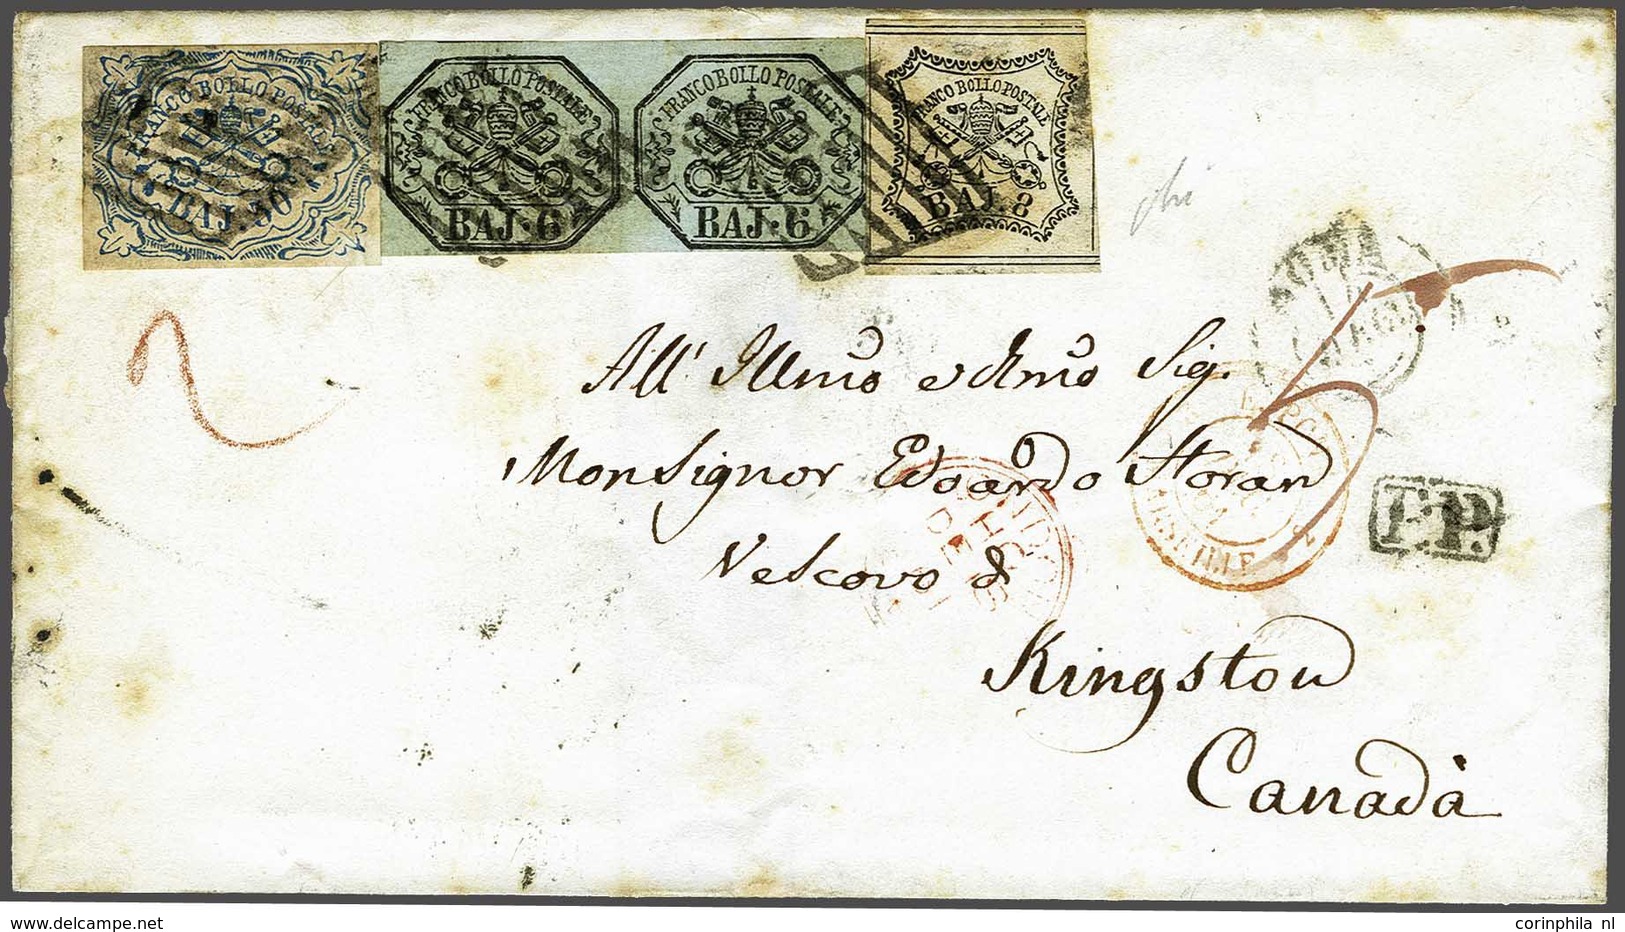 FRANCO BOLLO POSTALE
BAJ. 50
FRANCO BOLLO POSTALE
BAJ. 6
FRANCO BOLLO POSTALE
BAJ. 6
FRANCO BOLLO POSTALE
BAJ. 8
ROMA
2
All' Illmo e Rmo Sig.
Monsignor Edoardo Horan
Vescovo di
Kingston
Canadà
P.P.
MARSEILLE
2
delcampe.net
corinphila nl